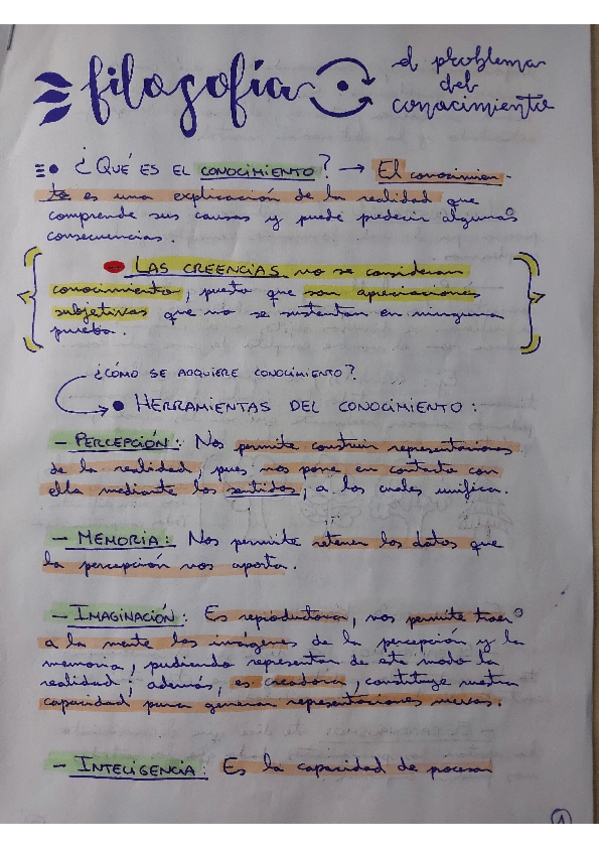 filosofía
el problema
del
conocimiento
¿QUÉ ES EL CONOCIMIENTO? → El conocimien-
to es una explicación de la realidad que
comprende sus causas y puede predecir algunas
consecuencias.
LAS CREENCIAS no se consideran
conocimiento, puesto que son apreciaciones
subjetivas que no se sustentan en ninguna
prueba.
¿CÓMO SE ADQUIERE CONOCIMIENTO?
HERRAMIENTAS DEL CONOCIMIENTO:
- PERCEPCIÓN: Nos permite construir representaciones
de la realidad, pues nos pone en contacto con
ella mediante los sentidos, a los cuales unifica.
- MEMORIA: Nos permite retener los datos que
la percepción nos aporta.
- IMAGINACIÓN: Es reproductora, nos permite traer
a la mente las imágenes de la percepción y la
memoria, pudiendo representar de este modo la
realidad; además, es creadora, constituye nuestra
capacidad para generar representaciones nuevas.
- INTELIGENCIA: Es la capacidad de procesar
1